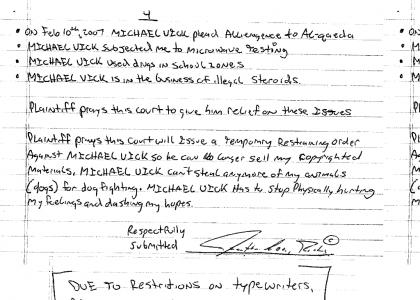 4
• ON Feb 10th, 2007 MICHAEL VICK plead Alliengence to Al-qaeda
• MICHAEL VICK Subjected me to microwave testing
• MICHAEL VICK used drugs in School zones
• MICHAEL VICK is in the business of illegal Steroids.
Plaintiff prays this court to give him relief on these Issues
Plaintiff prays this Court will Issue a Temporary Restraining order
Against MICHAEL VICK so he can No longer sell my copyrighted
Materials, MICHAEL VICK can't steal anymore of my animals
(dogs) for dog fighting. MICHAEL VICK Has to stop Physically hurting
My feelings and dashing my hopes.
Respectfully
Submitted
©
DUE TO Restritions on typewriters,